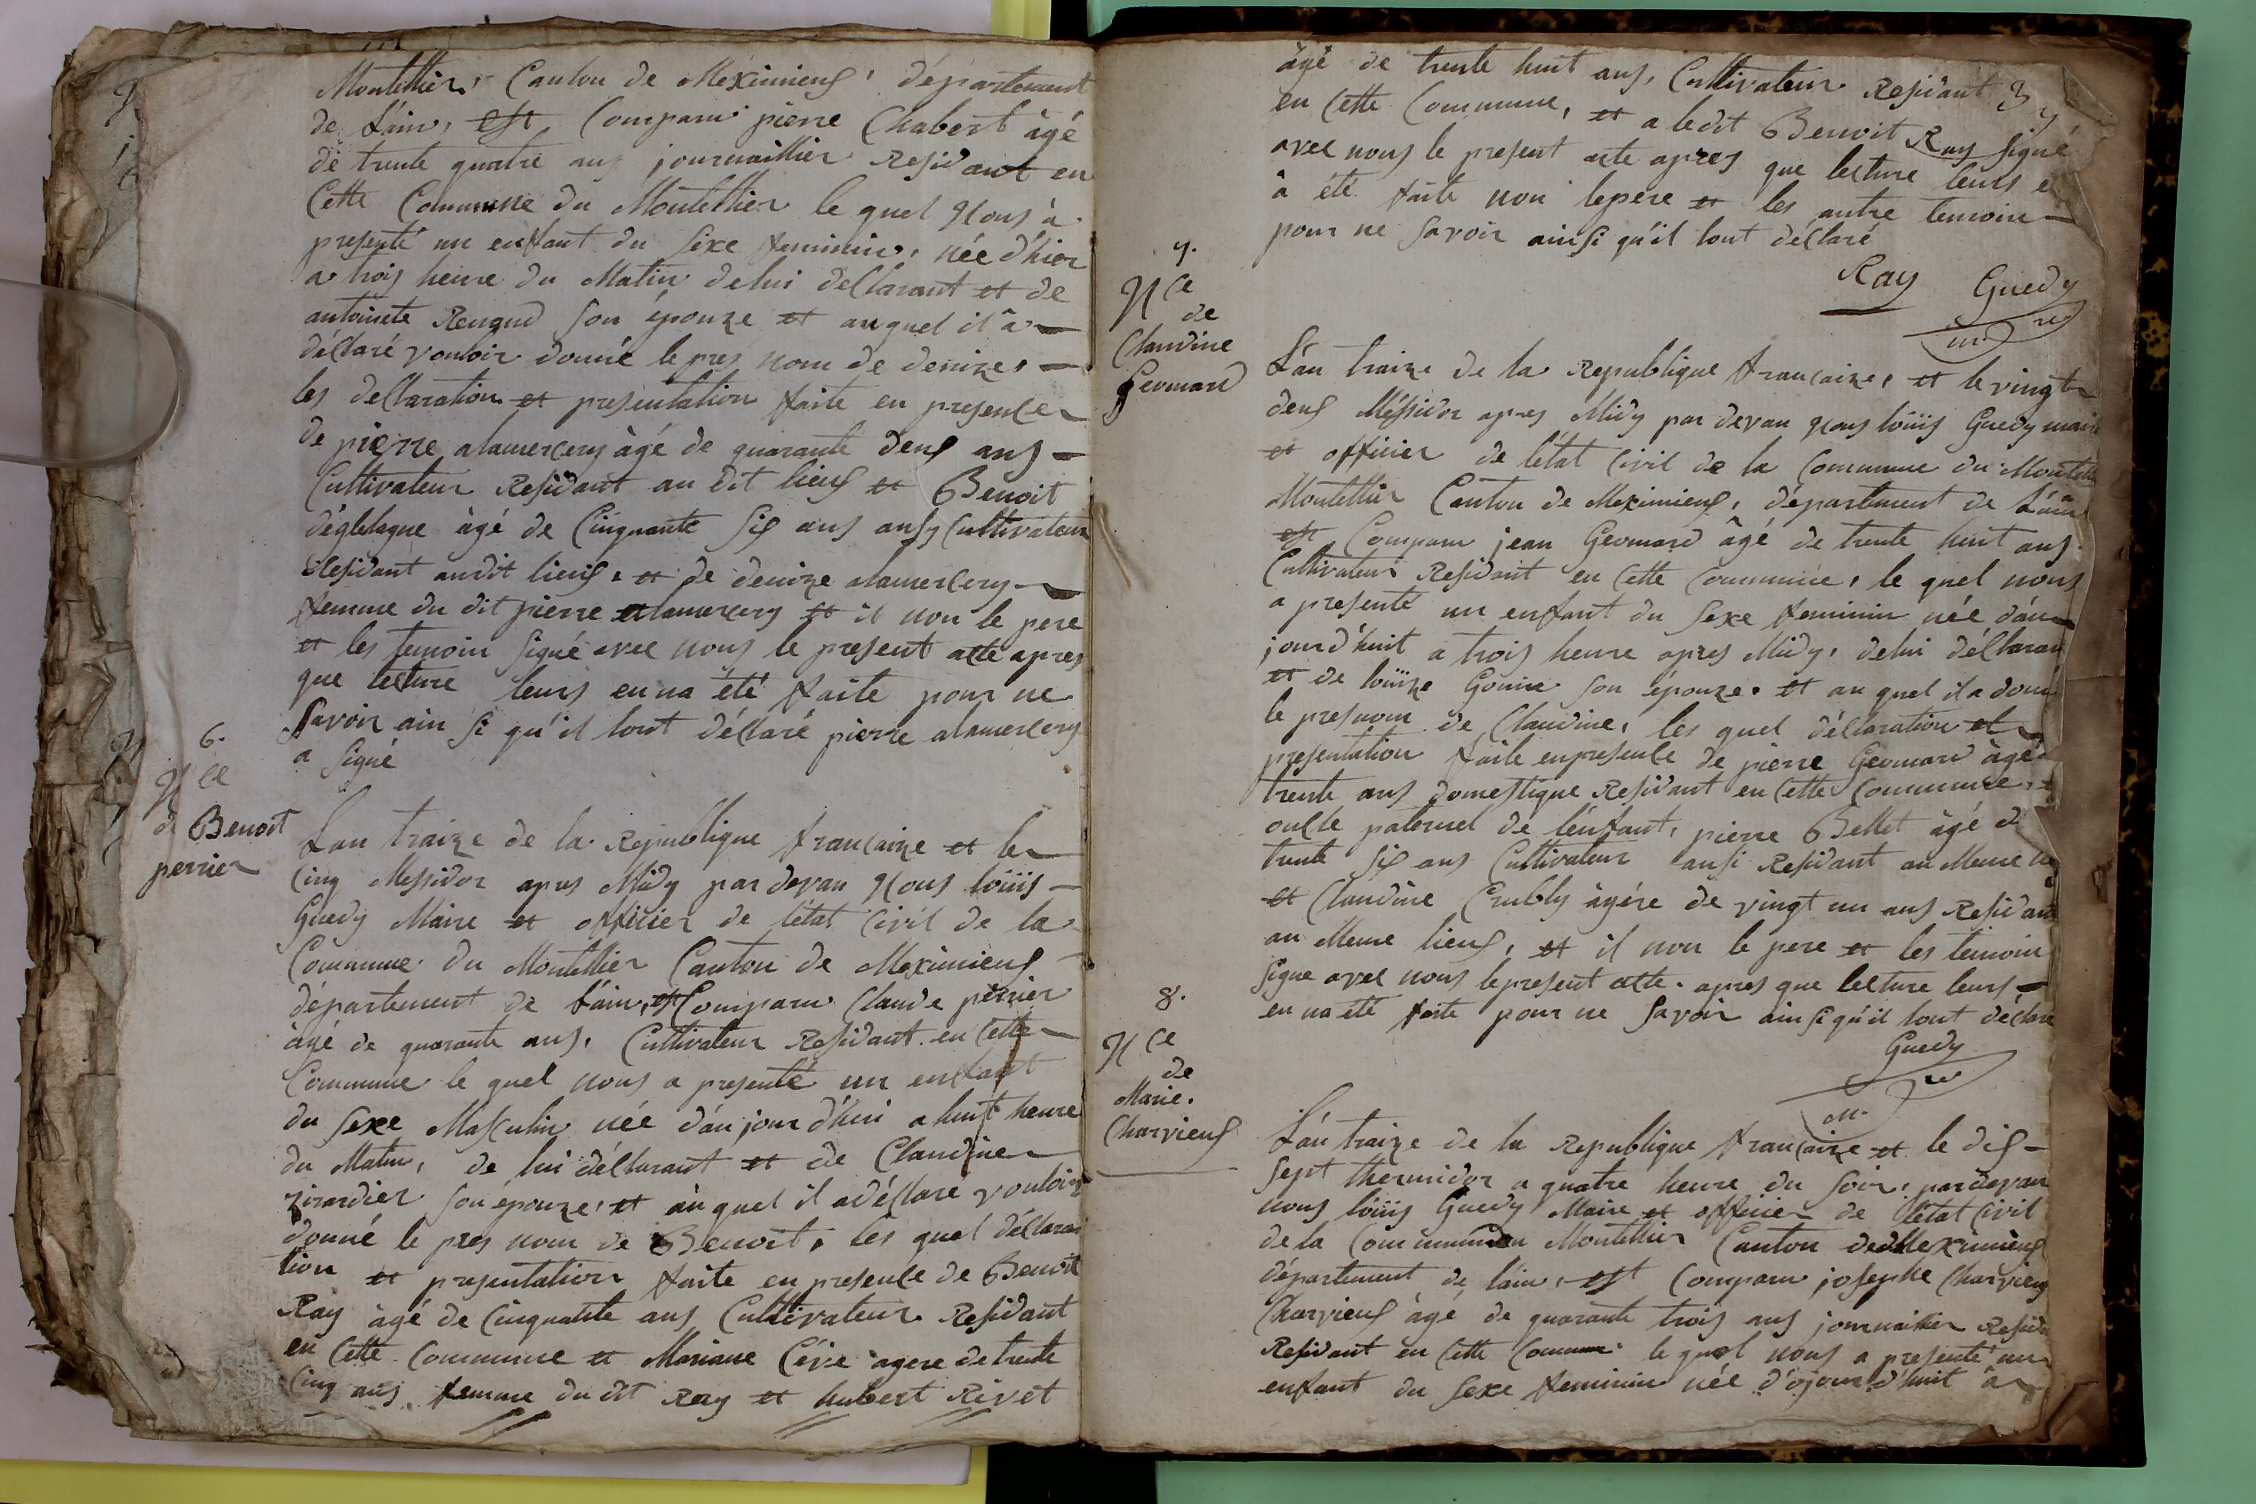 Montellier, Canton de Meximieuf, département
de L'ain, est Comparu pierre Chabert âgé
de trente quatre ans journaillier Residant en
Cette Commune du Montellier le quel Nous à
presenté un enffant du sexe feminin, née d'hier
a trois heure du Matin de lui declarant et de
antoinete Reugnd son épouze et auquel il â
déclaré vouloir donné le pres nom de denize,
les declaration et presentation faite en presence
de pierre alamercery âgé de quarante deuf ans
Cultivateur Residant au dit lieuf et Benoit
déglelague âgé de Cinquante sif ans ausy Cultivateur
Residant audit lieuf, et de denize alamercery
femme du dit pierre alamercery et il non le pere
et les temoin signé avec nous le present acte apres
que lecture leurs en na été faite pour ne
savoir ain si qu'il lont déclaré pierre alamercery
a signé
6.
N ce
de Benoit
perrier
Lan traize de la Republique francaize et le
cinq Messidor apres Midy par devan Nous loüis
Guedy Maire et officier de létat Civil de la
Commune du Montellier Canton de Meximieuf
département de L'ain, est Comparu Claude perrier
âgé de quarante ans, Cultivateur Residant en Cette
Commune le quel nous a presenté un enfant
du sexe Masculin née d'au jour d'hui a huit heure
du Matin, de lui déclarant et de Claudine
girardier son épouze, et au quel il a déclaré vouloir
donné le pres nom de Benoit, les quel déclara
tion et presentation faite en presence de Benoit
Ray âgé de Cinquante ans Cultivateur Residant
en Cette Commune et Mariane Cérie agere de trente
Cinq ans femme du dit Ray et hubert Rivet
âgé de trente huit ans, Cultivateur Residant 3
en Cette Commune, et a ledit Benoit Ray signé
avec nous le present acte apres que lecture leurs e
â été faite non le pere et les autre temoin
pour ne savoir ainsi qu'il lont déclaré
Ray Guedy
m.re
7.
N ce
de
Claudine
Geomard
L'an traize de la Republique francaize, et le vingt
deuf Méssidor apres Midy par devan Nous loüis Guedy maire
et officier de létat Civil de la Commune du Montelli
Montellier Canton de Meximieuf, département de L'ain
est Comparu jean Geomard âgé de trente huit ans
Cultivateur Residant en Cette Commune, le quel nous
a presenté un enfant du sexe feminin née d'au
jourd'huit a trois heure apres Midy, de lui déclaran
et de loüize Gouin son épouze, et au quel il a donné
le presnom de Claudine, les quel déclaration et
presentation faite en presence de pierre Geomard âgé
trente ans domestique Residant en Cette Commune,
oncle paternel de l'énfant, pierre Bellet âgé de
trente sif ans Cultivateur ausi Residant au Meme lie
et Claudine Crubly âgére de vingt un ans Residant
au Meme lieuf, et il non le pere et les témoin
signé avec nous le present acte apres que lecture leurs
en na été faite pour ne savoir ainsi qu'il lont déclaré
Guedy
m.re
8.
N ce
de
Marie
Charvieuf
L'án traize de la Republique francaize et le dif
sept thermidor a quatre heure du soir, par devan
nous loüis Guedy Maire et officier de létat Civil
de la Commune du Montellier Canton de Meximieuf
département de lain, est Comparu josephe Charvieuf
Charvieuf âgé de quarante trois ans journailier Resida
Residant en Cette Commune le quel nous a presenté un
enffant du sexe feminin née d'ojourd'huit â